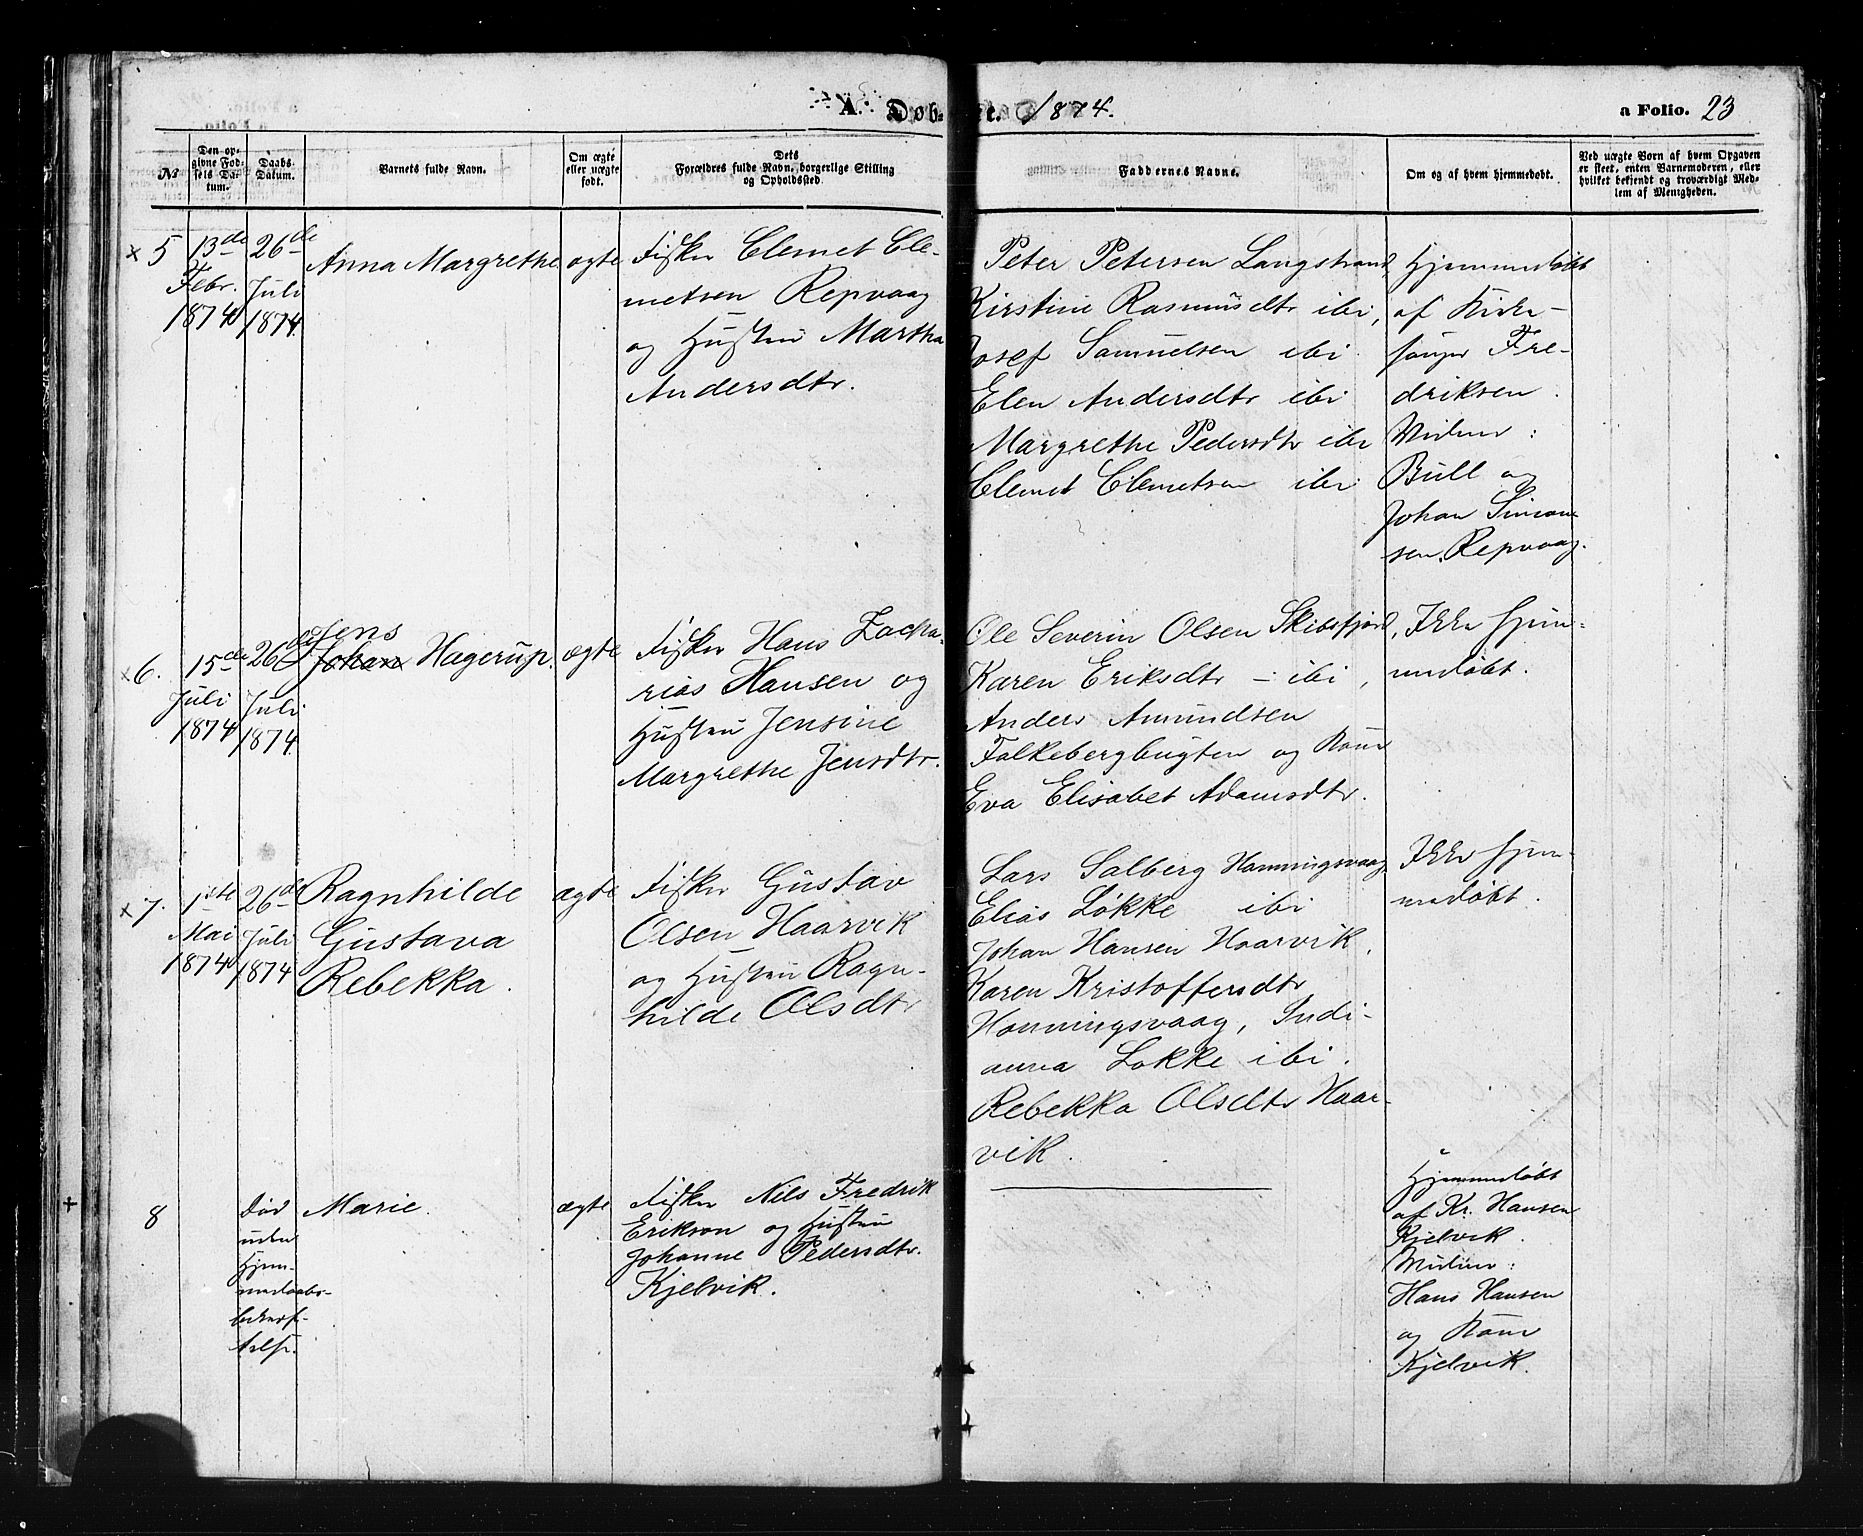 A. Døbte. 1874.
a Folio. 23
No
Den opgivne Fødsels Datum.
Daabs-Datum.
Barnets fulde Navn.
Om ægte eller uægte født.
Dets Forældres fulde Navn, borgerlige Stilling og Opholdssted.
Faddernes Navne.
Om og af hvem hjemmedøbt.
Ved uægte Børn af hvem Opgaven er skeet, enten Barnemoderen, eller hvilket bekjendt og troværdigt Medlem af Menigheden.
x 5
13de
Febr.
1874
26de
Juli
1874
Anna Margrethe
ægte
Fisker Clemet Cle-
metsen Repvaag
og Hustru Martha
Andersdtr.
Peter Petersen Langstrand,
Kirstine Rasmusdtr ibi,
Josef Samuelsen ibi
Elen Andersdtr ibi
Margrethe Pedersdtr ibi
Clemet Clemetsen ibi
Hjemmedøbt
af Kirke-
sanger Fre-
driksen.
Vidner:
Bull og
Johan Simon-
sen, Repvaag.
x 6.
15de
Juli
1874
26de
Juli
1874
Jens
Johan Hagerup.
ægte
Fisker Hans Zacha-
rias Hansen og
Hustru Jensine
Margrethe Jensdtr.
Ole Severin Olsen Skibsfjord,
Karen Eriksdtr - ibi,
Anders Amundsen
Falkebergbugten og Kone
Eva Elisabet Adamsdtr.
Ikke hjem-
medøbt.
x 7.
1ste
Mai
1874
26de
Juli
1874
Ragnhilde
Gustava
Rebekka.
ægte
Fisker Gustav
Olsen Haarvik
og Hustru Ragn-
hilde Olsdtr
Lars Salberg Honningsvaag
Elias Løkke ibi
Johan Hansen Haarvik.
Karen Kristoffersdtr
Honningsvaag, Indi-
anna Løkke ibi.
Rebekka Olsdtr Haar-
vik.
Ikke hjem-
medøbt.
8
død
uden
Hjem-
medaabs-
bekræf-
telse.
Marie.
ægte
Fisker Nils Fredrik
Erikson og Hustru
Johanne Pedersdtr.
Kjelvik.
Hjemmedøbt
af Kr. Hansen
Kjelvik.
Vidner:
Hans Hansen
og Kone
Kjelvik.